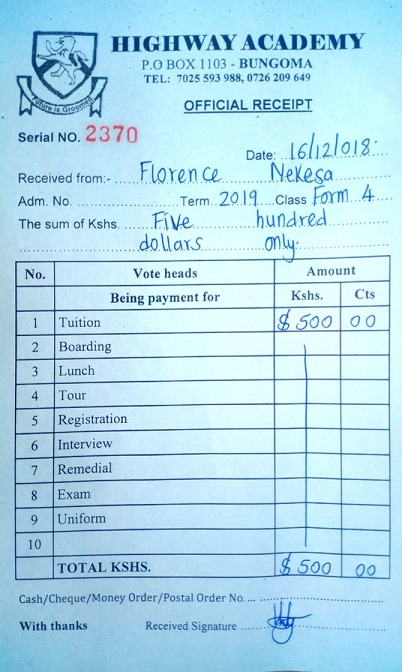 HIGHWAY ACADEMY
P.O BOX 1103 - BUNGOMA
TEL: 7025 593 988, 0726 209 649
Future is Groomed
OFFICIAL RECEIPT
Serial NO. 2370
Date: 16/12/018
Received from:- Florence Nekesa
Adm. No. Term 2019 Class Form 4
The sum of Kshs. Five hundred
dollars only.
No. Vote heads Amount
Being payment for Kshs. Cts
1 Tuition $500 00
2 Boarding
3 Lunch
4 Tour
5 Registration
6 Interview
7 Remedial
8 Exam
9 Uniform
10
TOTAL KSHS. $500 00
Cash/Cheque/Money Order/Postal Order No.
With thanks Received Signature